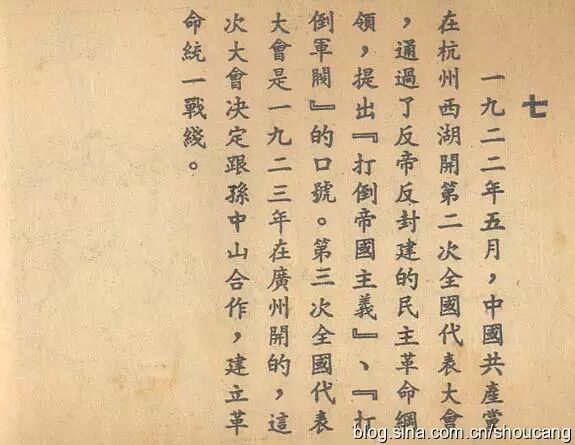 七
一九二二年五月，中國共產黨
在杭州西湖開第二次全國代表大會
，通過了反帝反封建的民主革命綱
領，提出『打倒帝國主義』、『打
倒軍閥』的口號。第三次全國代表
大會是一九二三年在廣州開的，這
次大會决定跟孫中山合作，建立革
命統一戰綫。
blog.sina.com.cn/shoucang